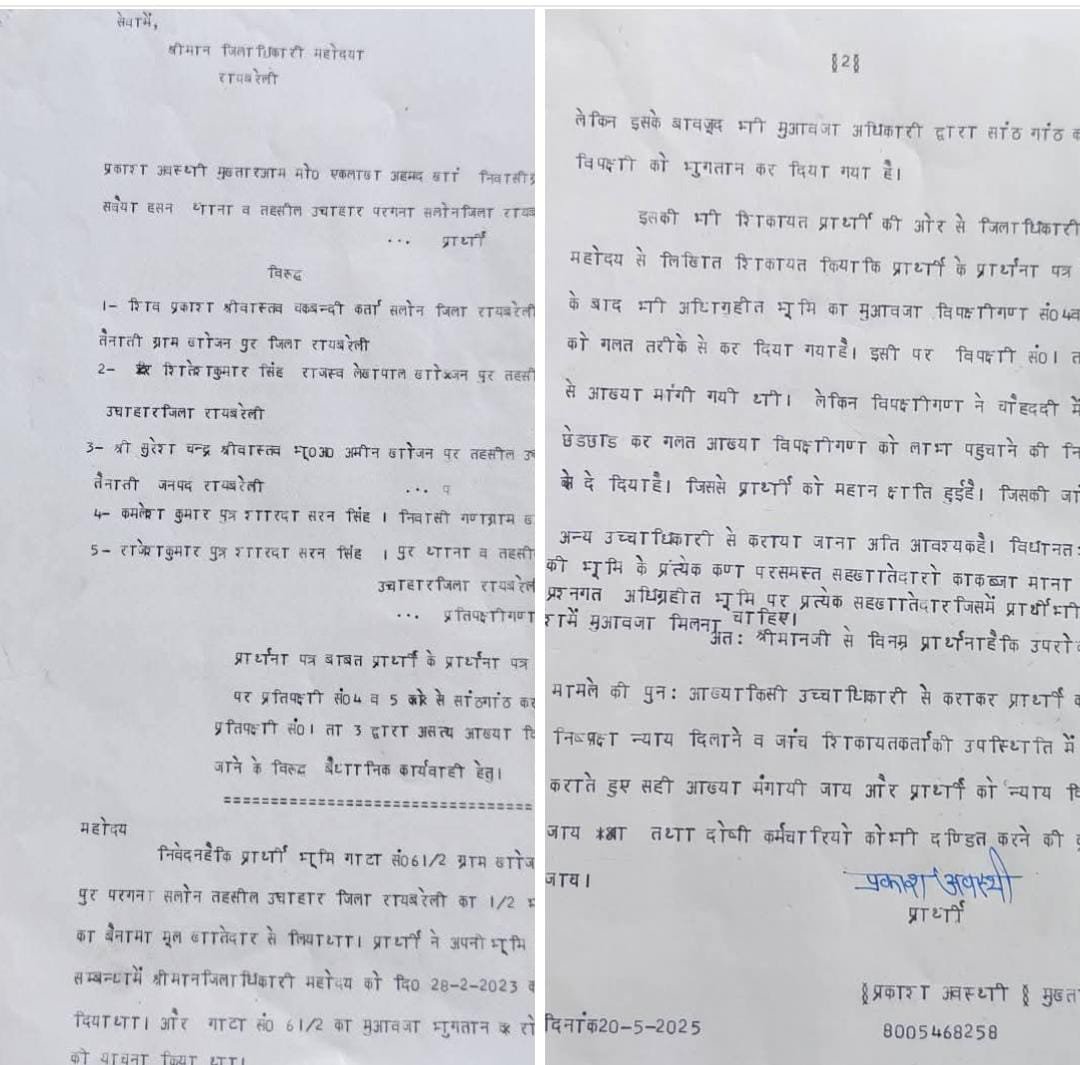 सेवामें,
श्रीमान जिलाधिकारी महोदया
रायबरेली
प्रकाश अवस्थी मुख्तारआम मो० एकलाख अहमद खां निवासी
सवैया हसन थाना व तहसील उंचाहार परगना सलोनजिला रायब
... प्रार्थी
विरूद्ध
1- शिव प्रकाश श्रीवास्तव चकबन्दी कर्ता सलोन जिला रायबरेली
तैनाती ग्राम खोजन पुर जिला रायबरेली
2- शितेशकुमार सिंह राजस्व लेखपाल खोजन पुर तहसी
उंचाहारजिला रायबरेली
3- श्री सुरेश चन्द्र श्रीवास्तव भू०अ० अमीन खोजन पुर तहसील उं
तैनाती जनपद रायबरेली ... प
4- कमलेश कुमार पुत्र शारदा सरन सिंह । निवासी गणग्राम ख
5- राजेशकुमार पुत्र शारदा सरन सिंह । पुर थाना व तहसी
उंचाहारजिला रायबरेली
... प्रतिपक्षीगण
प्रार्थना पत्र बाबत प्रार्थी के प्रार्थना पत्र
पर प्रतिपक्षी सं०4 व 5 से सांठगांठ कर
प्रतिपक्षी सं०1 ता 3 द्वारा असत्य आख्या दि
जाने के विरूद्ध बैधानिक कार्यवाही हेतु।
================================
महोदय
निवेदनहैकि प्रार्थी भूमि गाटा सं०61/2 ग्राम खोज
पुर परगना सलोन तहसील उंचाहार जिला रायबरेली का 1/2 भ
का बैनामा मूल खातेदार से लियाथा। प्रार्थी ने अपनी भूमि
सम्बन्धमें श्रीमानजिलाधिकारी महोदय को दि० 28-2-2023 क
दियाथा। और गाटा सं० 61/2 का मुआवजा भुगतान रो
को याचना किया था।
§2§
लेकिन इसके बावजूद भी मुआवजा अधिकारी द्वारा सांठ गांठ क
विपक्षी को भुगतान कर दिया गया है।
इसकी भी शिकायत प्रार्थी की ओर से जिलाधिकारी
महोदय से लिखित शिकायत कियाकि प्रार्थी के प्रार्थना पत्र
के बाद भी अधिग्रहीत भूमि का मुआवजा विपक्षीगण सं०4व
को गलत तरीके से कर दिया गयाहै। इसी पर विपक्षी सं०1 त
से आख्या मांगी गयी थी। लेकिन विपक्षीगण ने चौहददी में
छेडछाड कर गलत आख्या विपक्षीगण को लाभ पहुचाने की नि
से दे दियाहै। जिससे प्रार्थी को महान क्षति हुईहै। जिसकी जां
अन्य उच्चाधिकारी से कराया जाना अति आवश्यकहै। विधानत:
की भूमि के प्रत्येक कण परसमस्त सहखातेदारो काकब्जा माना
प्रश्नगत अधिग्रहीत भूमि पर प्रत्येक सहखातेदारजिसमें प्रार्थीभी
शामें मुआवजा मिलना चाहिए।
अत: श्रीमानजी से विनम्र प्रार्थनाहैकि उपरो
मामले की पुन: आख्याकिसी उच्चाधिकारी से कराकर प्रार्थी क
निष्पक्ष न्याय दिलाने व जांच शिकायतकर्ताकी उपस्थिति में
कराते हुए सही आख्या मंगायी जाय और प्रार्थी को न्याय दि
जाय तथा दोषी कर्मचारियो कोभी दण्डित करने की कृ
जाय।
प्रकाश अवस्थी
प्रार्थी
§प्रकाश अवस्थी § मुख्ता
दिनांक20-5-2025
8005468258